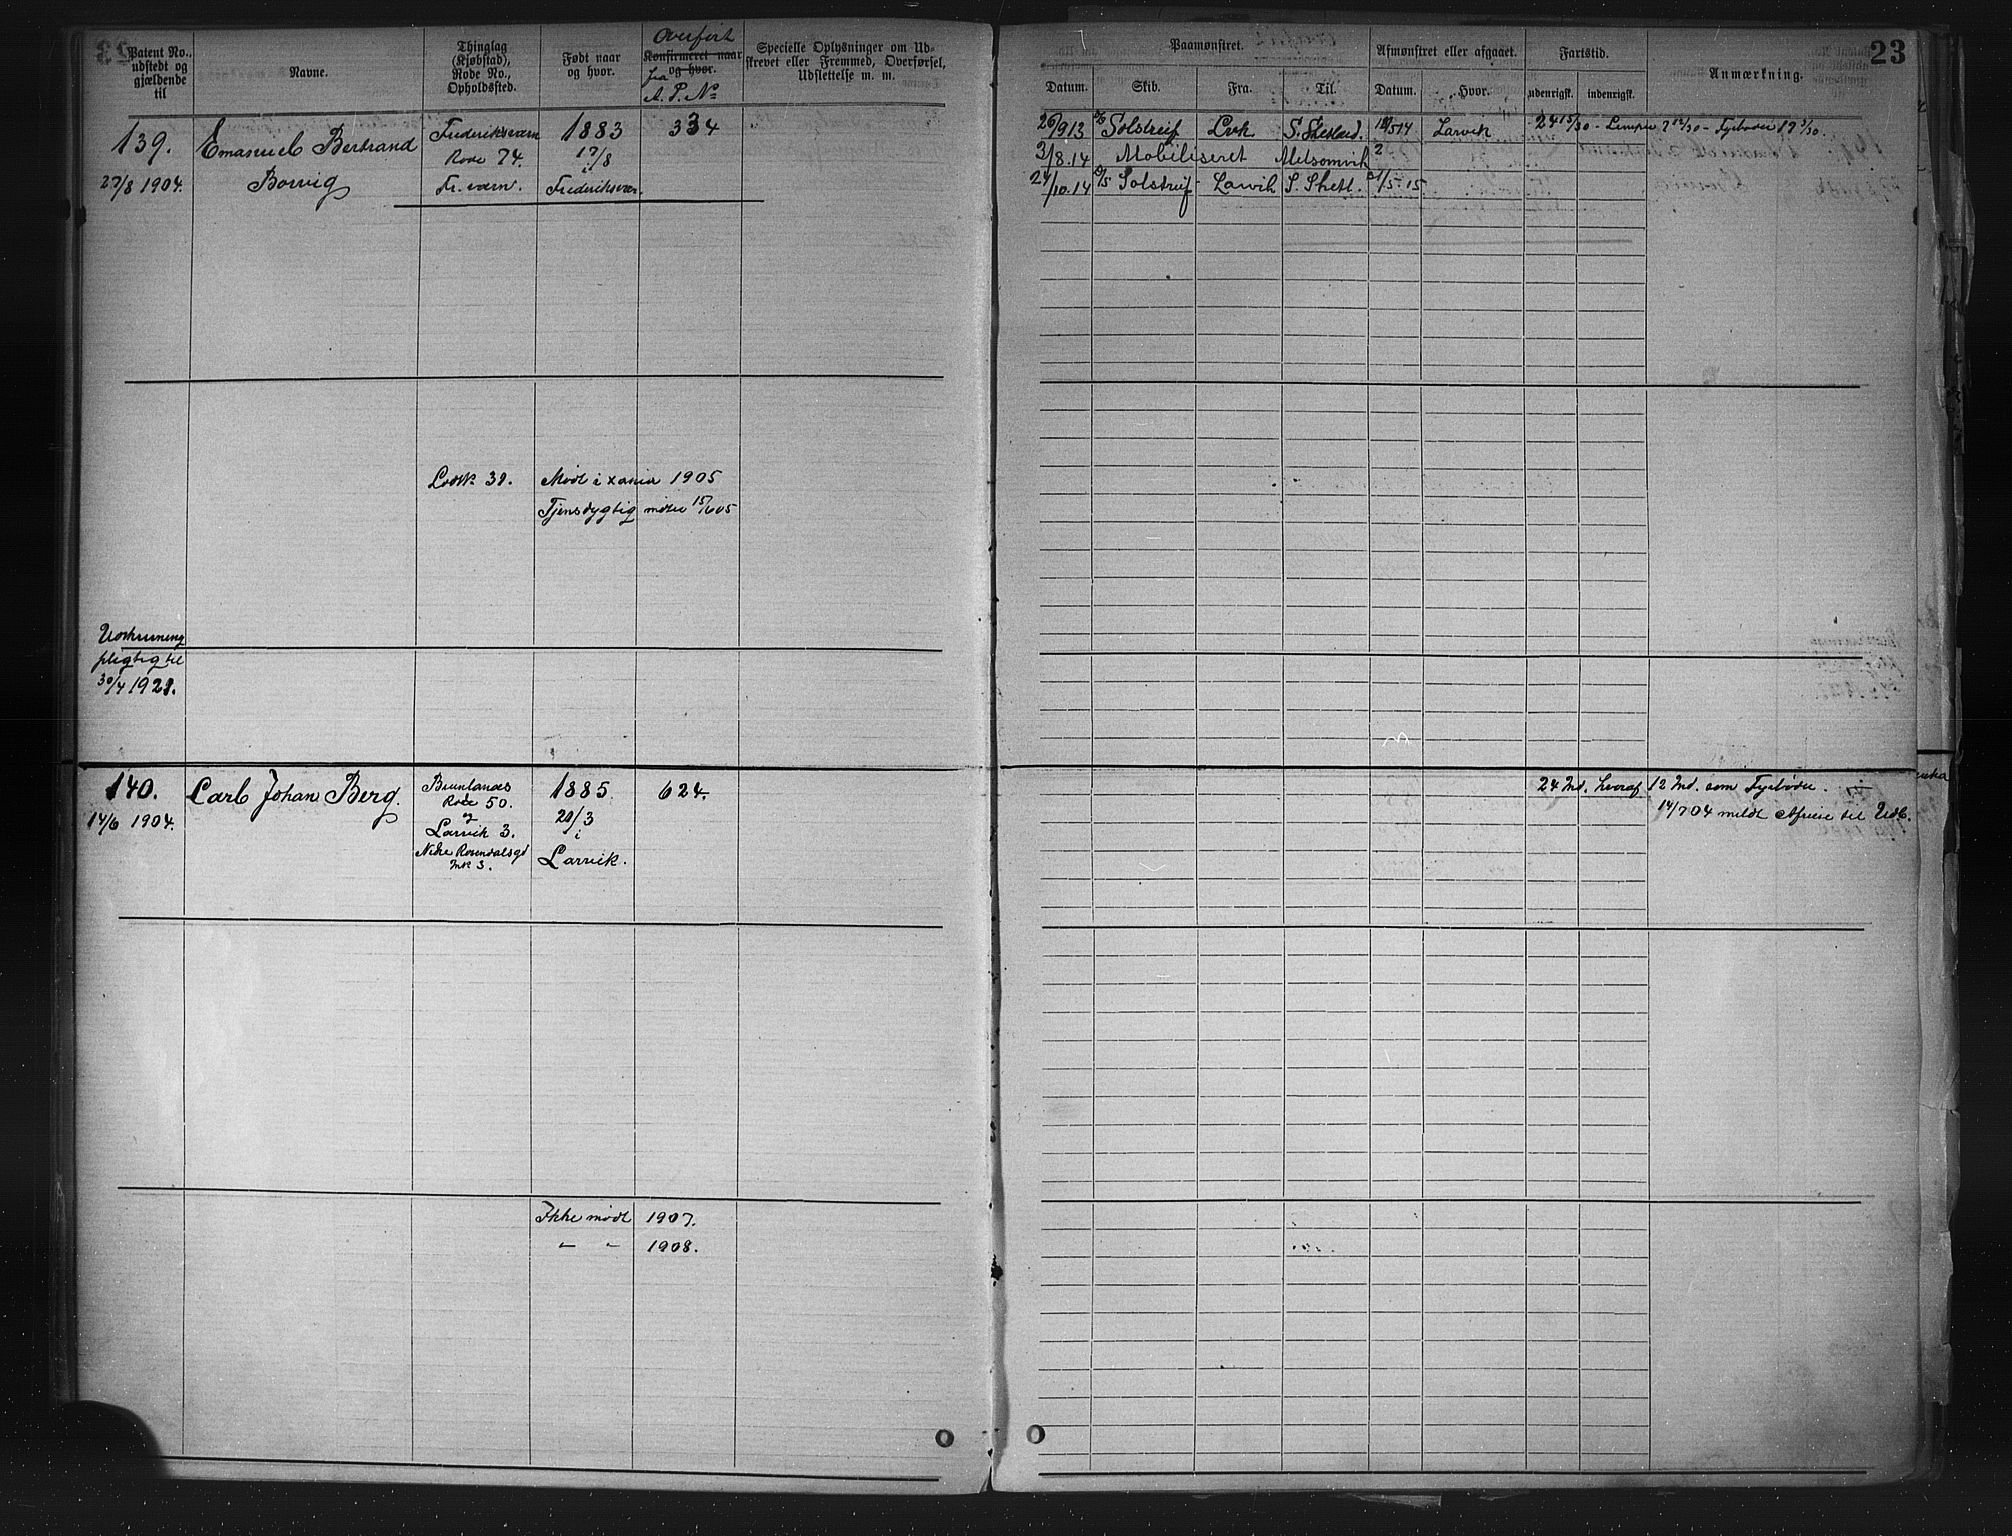 Patent No., udstedt og gjældende til
Navne.
Thinglag (Kjøbstad), Rode No., Opholdssted.
Født naar og hvor.
Overført
Konfirmeret naar og hvor.
fra
A. P. No
Specielle Oplysninger om Udskrevet eller Fremmed, Overførsel, Udslettelse m. m.
139.
Emanuel Bertrand
Frederiksværn
1883
334
Rode 74.
17/8
27/8 1904.
Borvig
Fr.værn.
i
Frederiksvær.
Lodtk. 38.
Mødt i Xania 1905
Tjensdygtig møder 15/6 05
Udskrivning
pligtig til
30/4 1921.
140.
Carl Johan Berg.
Brunlanæs
1885
624.
Rode 50.
20/3
14/6 1904.
og
i
Larvik 3.
Larvik.
Nedre Rosendalsgd
Mtk 3.
Ikke mødt 1907.
" " 1908.
23
Paamønstret.
Afmønstret eller afgaaet.
Fartstid.
Anmærkning.
Datum.
Skib.
Fra.
Til.
Datum.
Hvor.
udenrigsk.
indenrigsk.
26/9 13
Solstreif
Lvk
S. Shetland.
5 14
Larvik
24 15/30 - Lemper 7 12/30 - Fyrbøder 17 3/30.
3/8.14
Mobiliseret
Melsomvik
24/10.14
Solstreif
Larvik
S. Shetl.
1/5.15.
24 Md. hvoraf 12 Md. som Fyrbøder.
14/7 04 meldt Afreise til Udl.